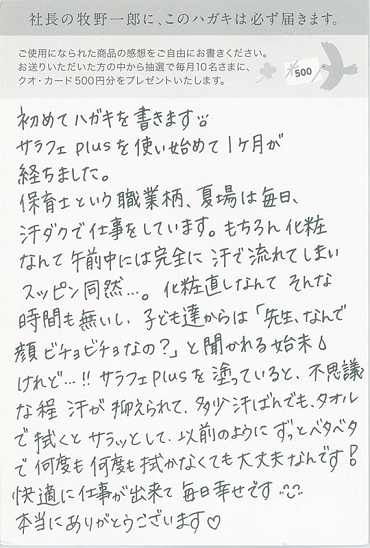 社長の牧野一郎に、このハガキは必ず届きます。
ご使用になられた商品の感想をご自由にお書きください。
お送りいただいた方の中から抽選で毎月10名さまに、
クオ・カード500円分をプレゼントいたします。
500
初めてハガキを書きます
サラフェplusを使い始めて1ヶ月が
経ちました。
保育士という職業柄、夏場は毎日、
汗ダクで仕事をしています。もちろん化粧
なんて午前中には完全に汗で流れてしまい
スッピン同然…。化粧直しなんてそんな
時間も無いし、子ども達からは「先生、なんで
顔ビチョビチョなの？」と聞かれる始末
けれど…!! サラフェplusを塗っていると、不思議
な程 汗が抑えられて、多少汗ばんでも、タオル
で拭くとサラッとして、以前のようにずっとベタベタ
で何度も何度も拭かなくても大丈夫なんです！
快適に仕事が出来て毎日幸せです
本当にありがとうございます♡